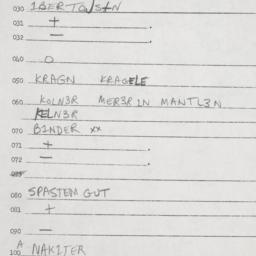 030 1BERTOWSIN
031 + .
032 — .
040 O
050 KRAGN KRAGELE
060 KOLN3R MER3RIN MANTL3N
KELN3R
070 BINDER xx
071 + .
072 — .
080 SPASTEM GUT
081 +
090 —
A
100 NAKITER